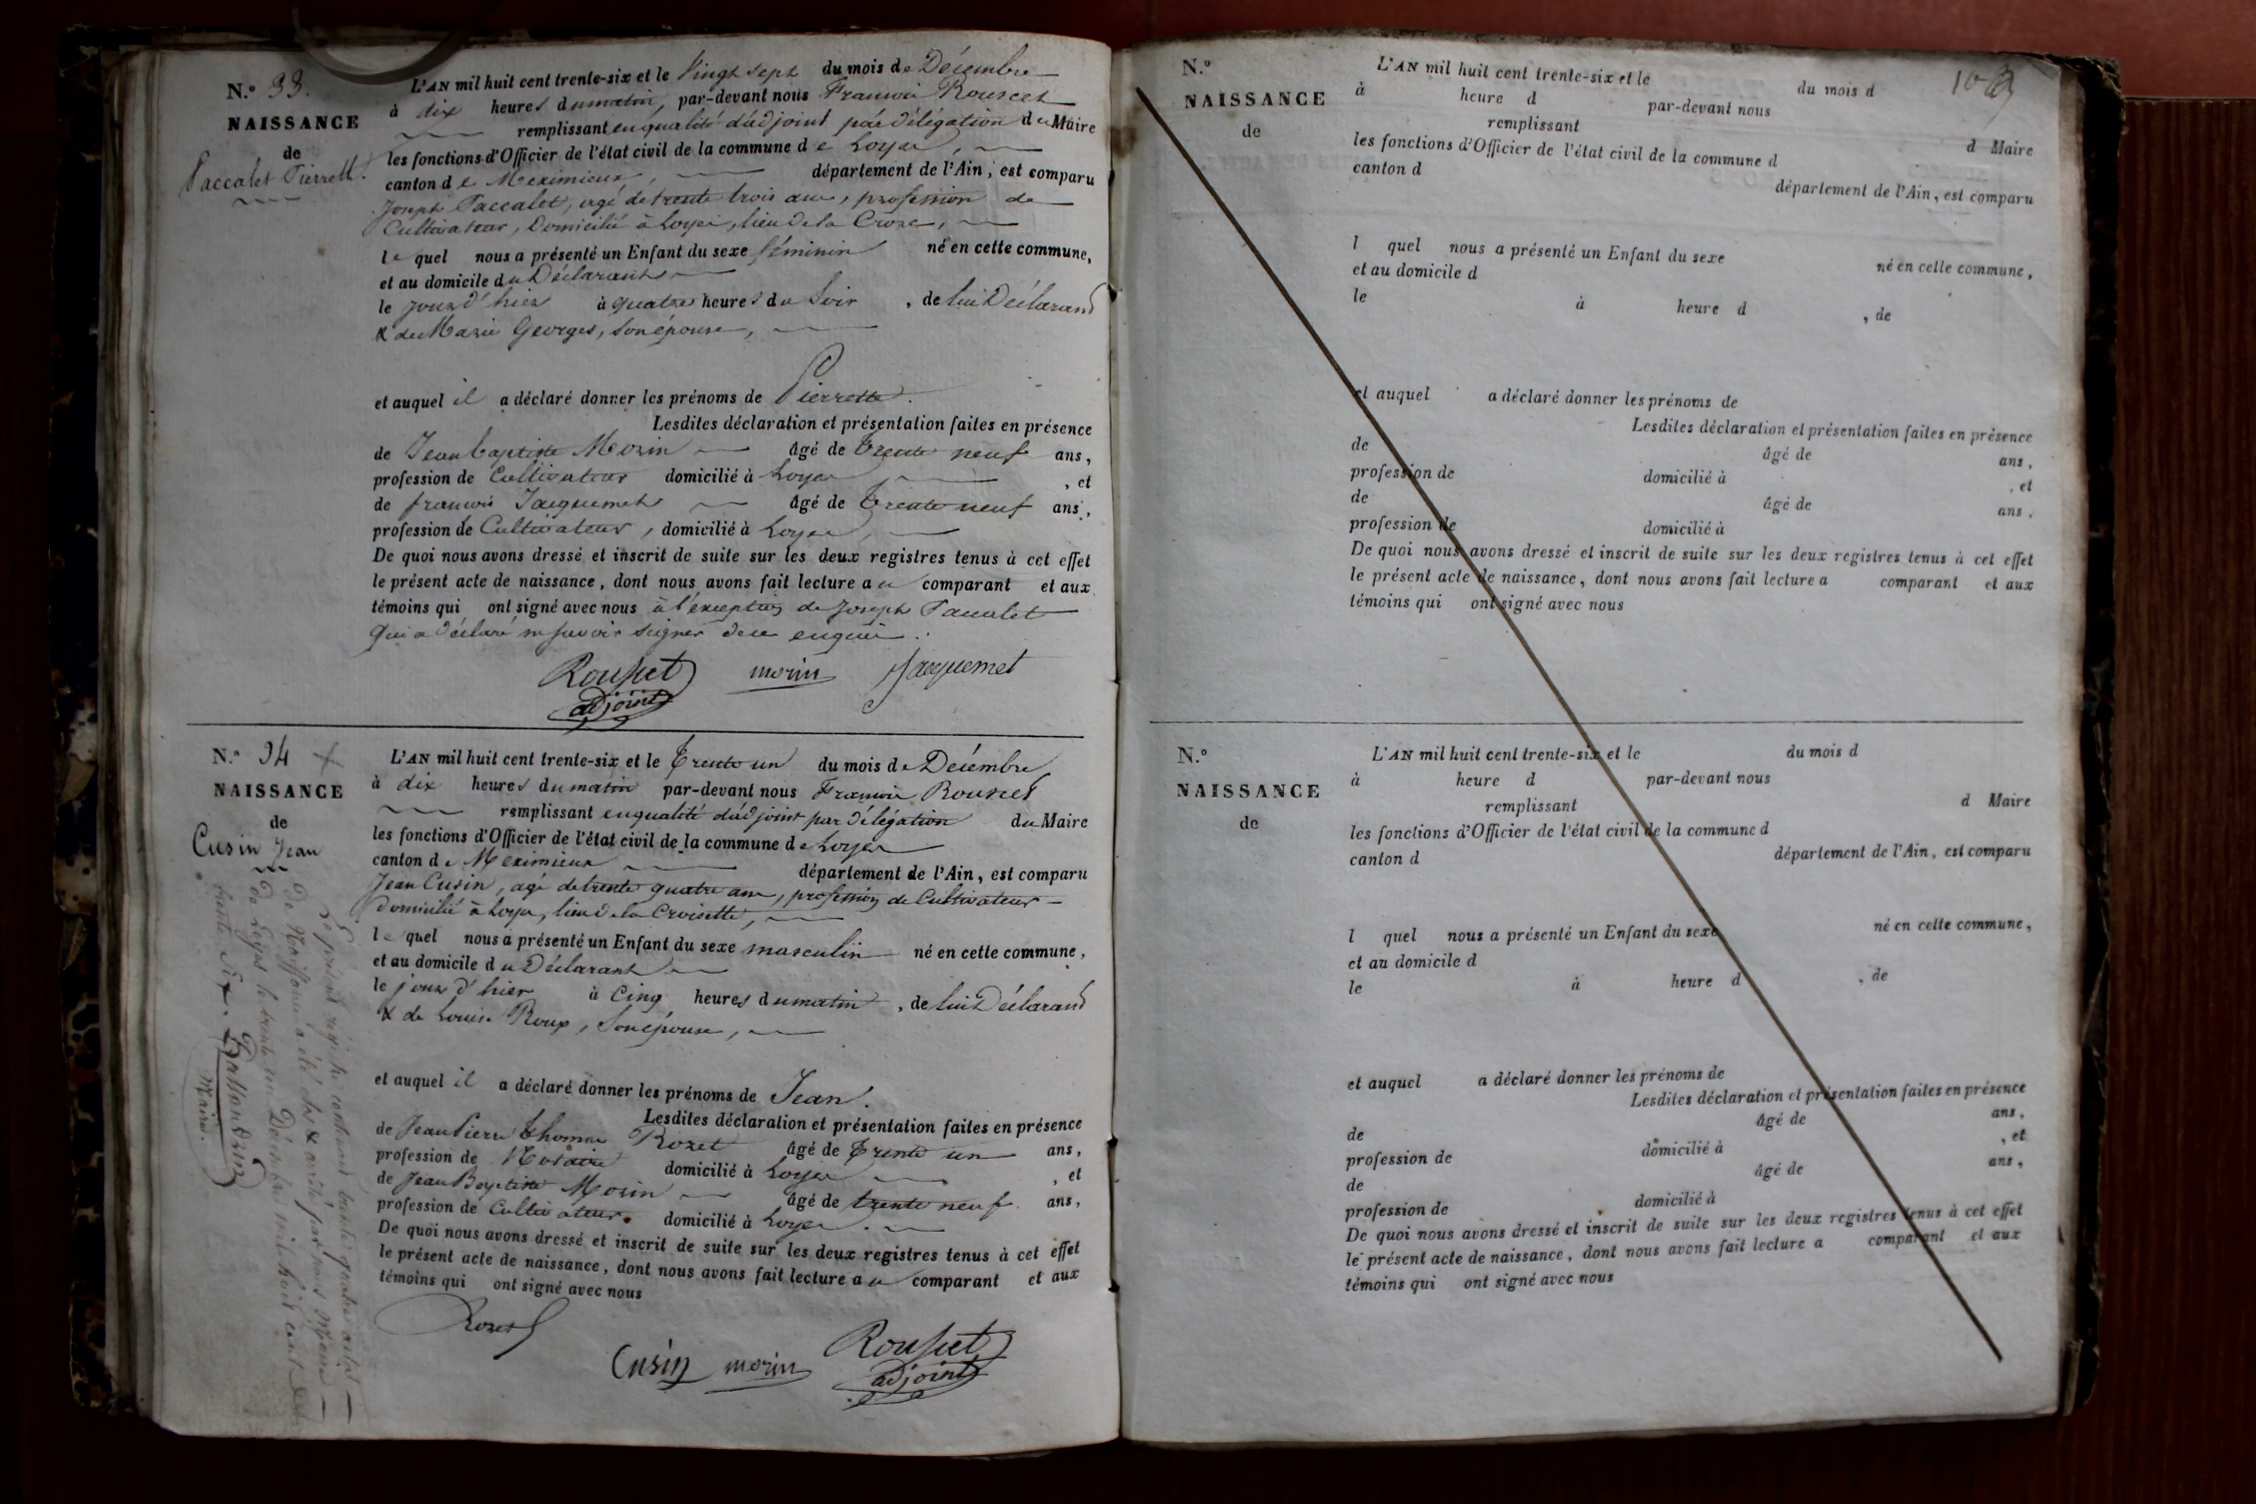 N.º 33.
NAISSANCE
de
Paccalet Pierrette.
L'AN mil huit cent trente-six et le vingt sept du mois de Décembre
à dix heures du matin, par-devant nous François Rousset
remplissant en qualité d'adjoint par délégation du Maire
les fonctions d'Officier de l'état civil de la commune de Loyes,
canton de Meximieux, département de l'Ain, est comparu
Joseph Paccalet, agé de trente trois ans, profession de
Cultivateur, domicilié à Loyes, lieu de la Croze,
lequel nous a présenté un Enfant du sexe féminin né en cette commune,
et au domicile du Déclarant
le jour d'hier à quatre heures du Soir, de lui Déclarand
& de Marie Georges, son épouse,
et auquel il a déclaré donner les prénoms de Pierrette.
Lesdites déclaration et présentation faites en présence
de Jean baptiste Morin âgé de trente neuf ans,
profession de Cultivateur domicilié à Loyes, et
de françois Jacquemet âgé de trente neuf ans,
profession de Cultivateur, domicilié à Loyes,
De quoi nous avons dressé et inscrit de suite sur les deux registres tenus à cet effet
le présent acte de naissance, dont nous avons fait lecture au comparant et aux
témoins qui ont signé avec nous à l'exception de Joseph Paccalet
qui a déclaré ne savoir signer de ce enquis.
Rousset morin Jacquemet
adjoint
N.º 34
NAISSANCE
de
Cusin Jean
L'AN mil huit cent trente-six et le trente un du mois de Décembre
à dix heures du matin par-devant nous François Rousset
remplissant en qualité d'adjoint par délégation du Maire
les fonctions d'Officier de l'état civil de la commune de Loyes
canton de Meximieux département de l'Ain, est comparu
Jean Cusin, agé de trente quatre ans, profession de Cultivateur
domicilié à Loyes, lieu de la Croisette,
lequel nous a présenté un Enfant du sexe masculin né en cette commune,
et au domicile du Déclarant
le jour d'hier à cinq heures du matin, de lui Déclarand
& de Louise Roux, son épouse,
et auquel il a déclaré donner les prénoms de Jean.
Lesdites déclaration et présentation faites en présence
de Jean Pierre Thomas Rozet âgé de trente un ans,
profession de Notaire domicilié à Loyes, et
de Jean Baptiste Morin âgé de trente neuf ans,
profession de Cultivateur domicilié à Loyes.
De quoi nous avons dressé et inscrit de suite sur les deux registres tenus à cet effet
le présent acte de naissance, dont nous avons fait lecture au comparant et aux
témoins qui ont signé avec nous
Rozet
Cusin morin Rousset
adjoint
Le présent registre contenant trente quatre actes
de Naissance a été clos & arrêté par nous Maire
de Loyes le trente un Décembre mil huit cent
trente six.
Maire.
N.º
NAISSANCE
de
L'AN mil huit cent trente-six et le du mois d
à heure d par-devant nous
remplissant d Maire
les fonctions d'Officier de l'état civil de la commune d
canton d département de l'Ain, est comparu
l quel nous a présenté un Enfant du sexe né en cette commune,
et au domicile d
le à heure d , de
et auquel a déclaré donner les prénoms de
Lesdites déclaration et présentation faites en présence
de âgé de ans,
profession de domicilié à , et
de âgé de ans,
profession de domicilié à
De quoi nous avons dressé et inscrit de suite sur les deux registres tenus à cet effet
le présent acte de naissance, dont nous avons fait lecture a comparant et aux
témoins qui ont signé avec nous
N.º
NAISSANCE
de
L'AN mil huit cent trente-six et le du mois d
à heure d par-devant nous
remplissant d Maire
les fonctions d'Officier de l'état civil de la commune d
canton d département de l'Ain, est comparu
l quel nous a présenté un Enfant du sexe né en cette commune,
et au domicile d
le à heure d , de
et auquel a déclaré donner les prénoms de
Lesdites déclaration et présentation faites en présence
de âgé de ans,
profession de domicilié à , et
de âgé de ans,
profession de domicilié à
De quoi nous avons dressé et inscrit de suite sur les deux registres tenus à cet effet
le présent acte de naissance, dont nous avons fait lecture a comparant et aux
témoins qui ont signé avec nous